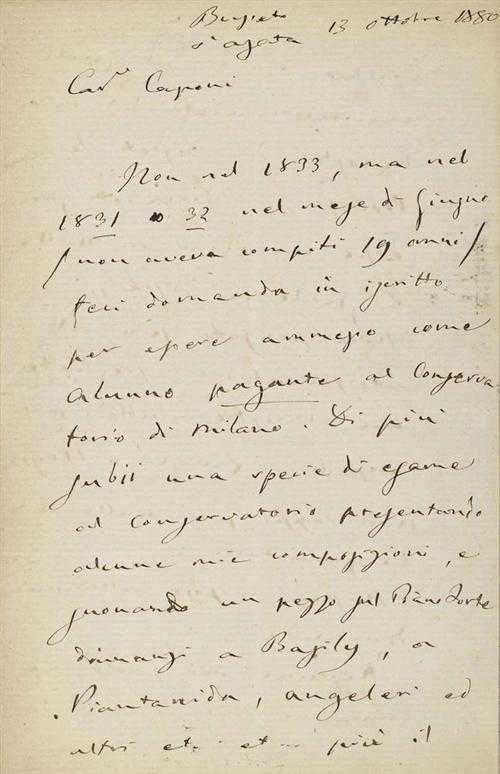 Busseto
St agata 13 ottobre 1880
Cavre Caponi
Non nel 1833, ma nel
1831 o 32 nel mese di Giugno
/non aveva compiti 19 anni/
feci domanda in iscritto
per essere ammesso come
alunno pagante al Conserva
torio di Milano. Di più
subii una specie di esame
al Conservatorio presentando
alcune mie composizioni, e
suonando un pezzo sul Piano Forte
dinanzi a Basily, a
Piantanida, angeleri ed
altri et.. et... più il